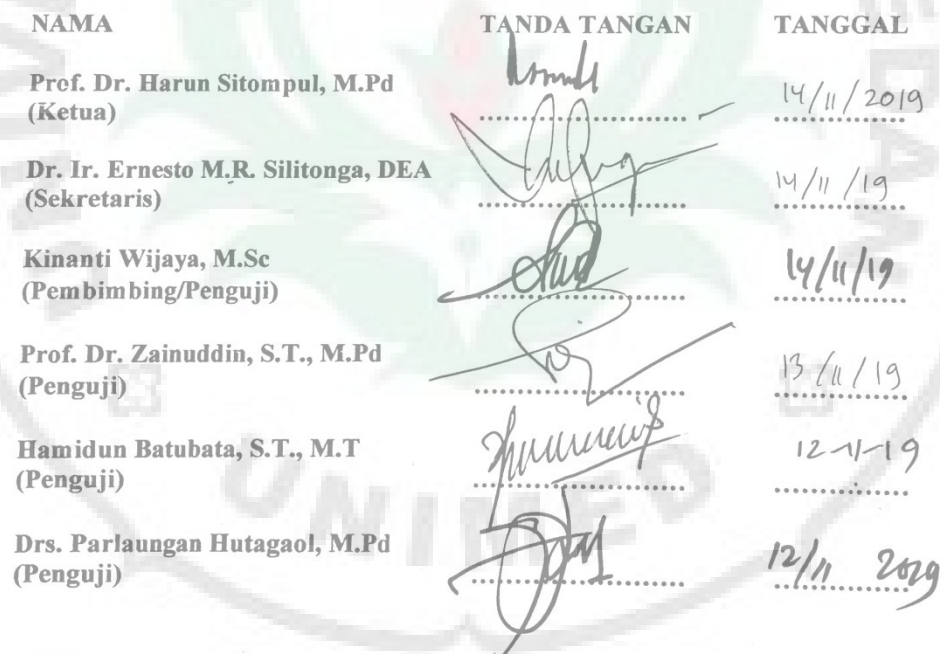 NAMA TANDA TANGAN TANGGAL
Prof. Dr. Harun Sitompul, M.Pd
(Ketua) 14/11/2019
Dr. Ir. Ernesto M.R. Silitonga, DEA
(Sekretaris) 14/11/19
Kinanti Wijaya, M.Sc
(Pembimbing/Penguji) 14/11/19
Prof. Dr. Zainuddin, S.T., M.Pd
(Penguji) 13/11/19
Hamidun Batubata, S.T., M.T 12-11-19
(Penguji)
UNIMED
Drs. Parlaungan Hutagaol, M.Pd
(Penguji) 12/11 2019